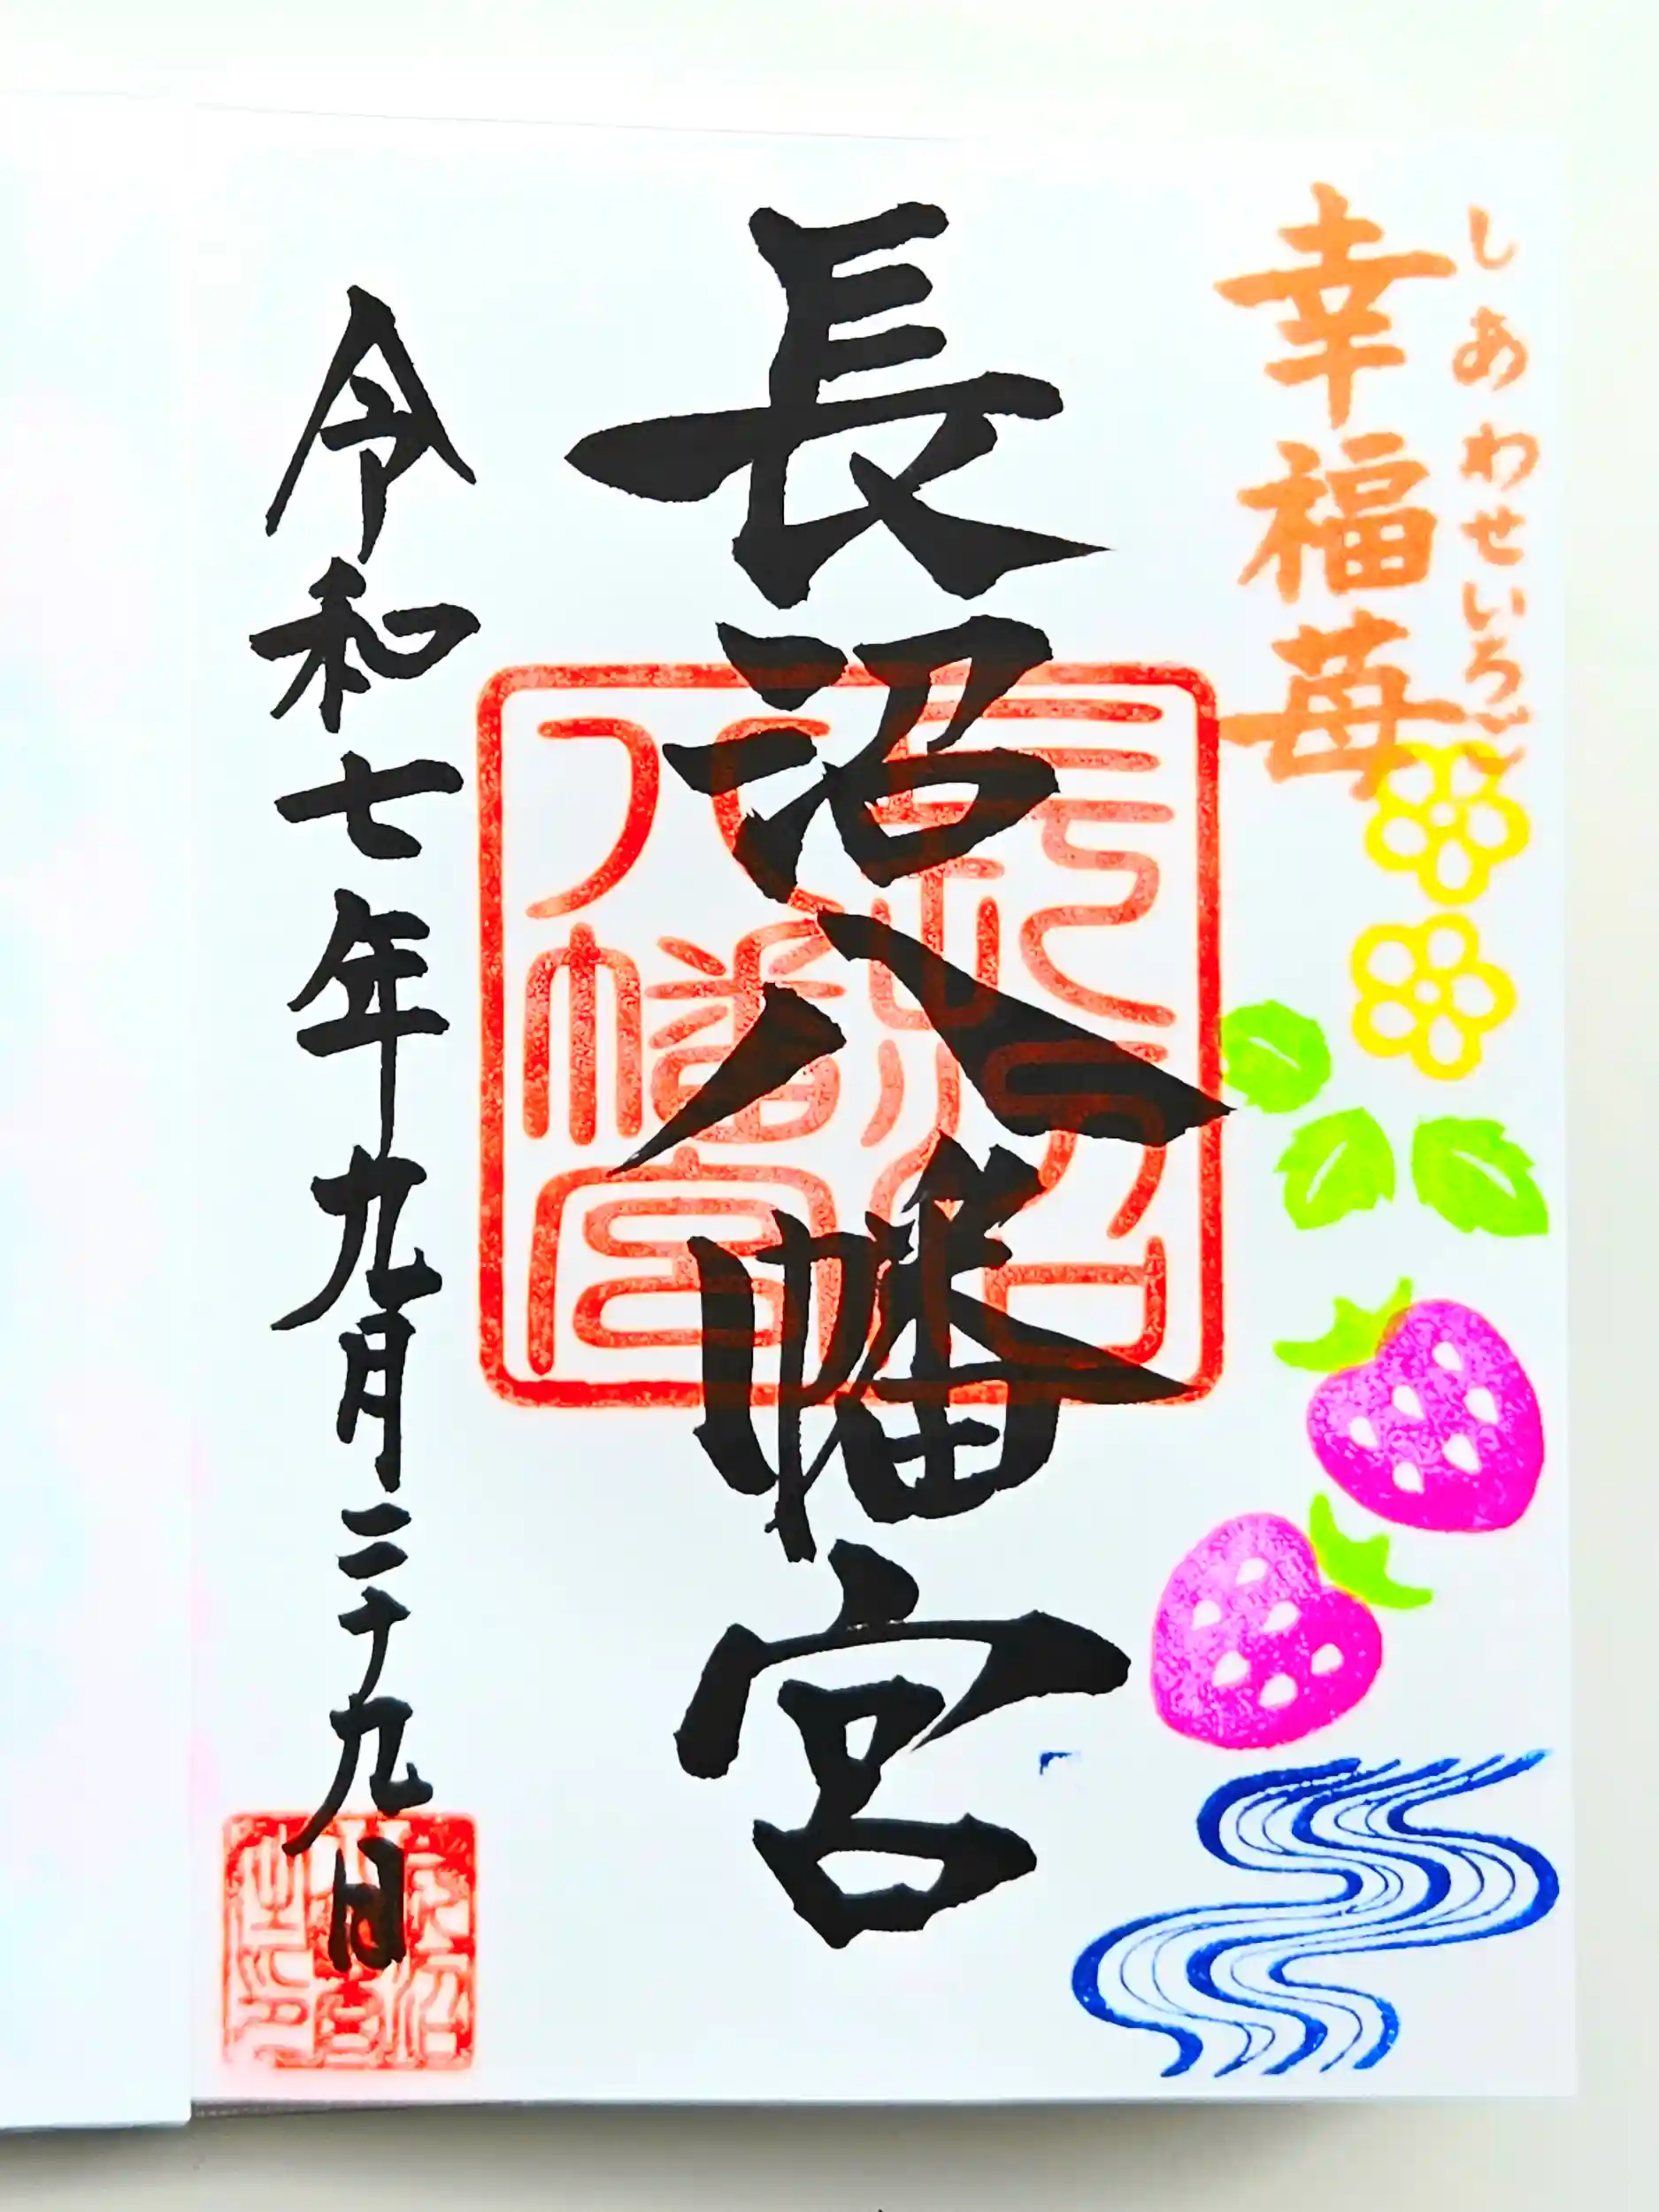 しあわせいろ
幸福苺
長沼八幡宮
令和七年九月二十九日
八幡宮